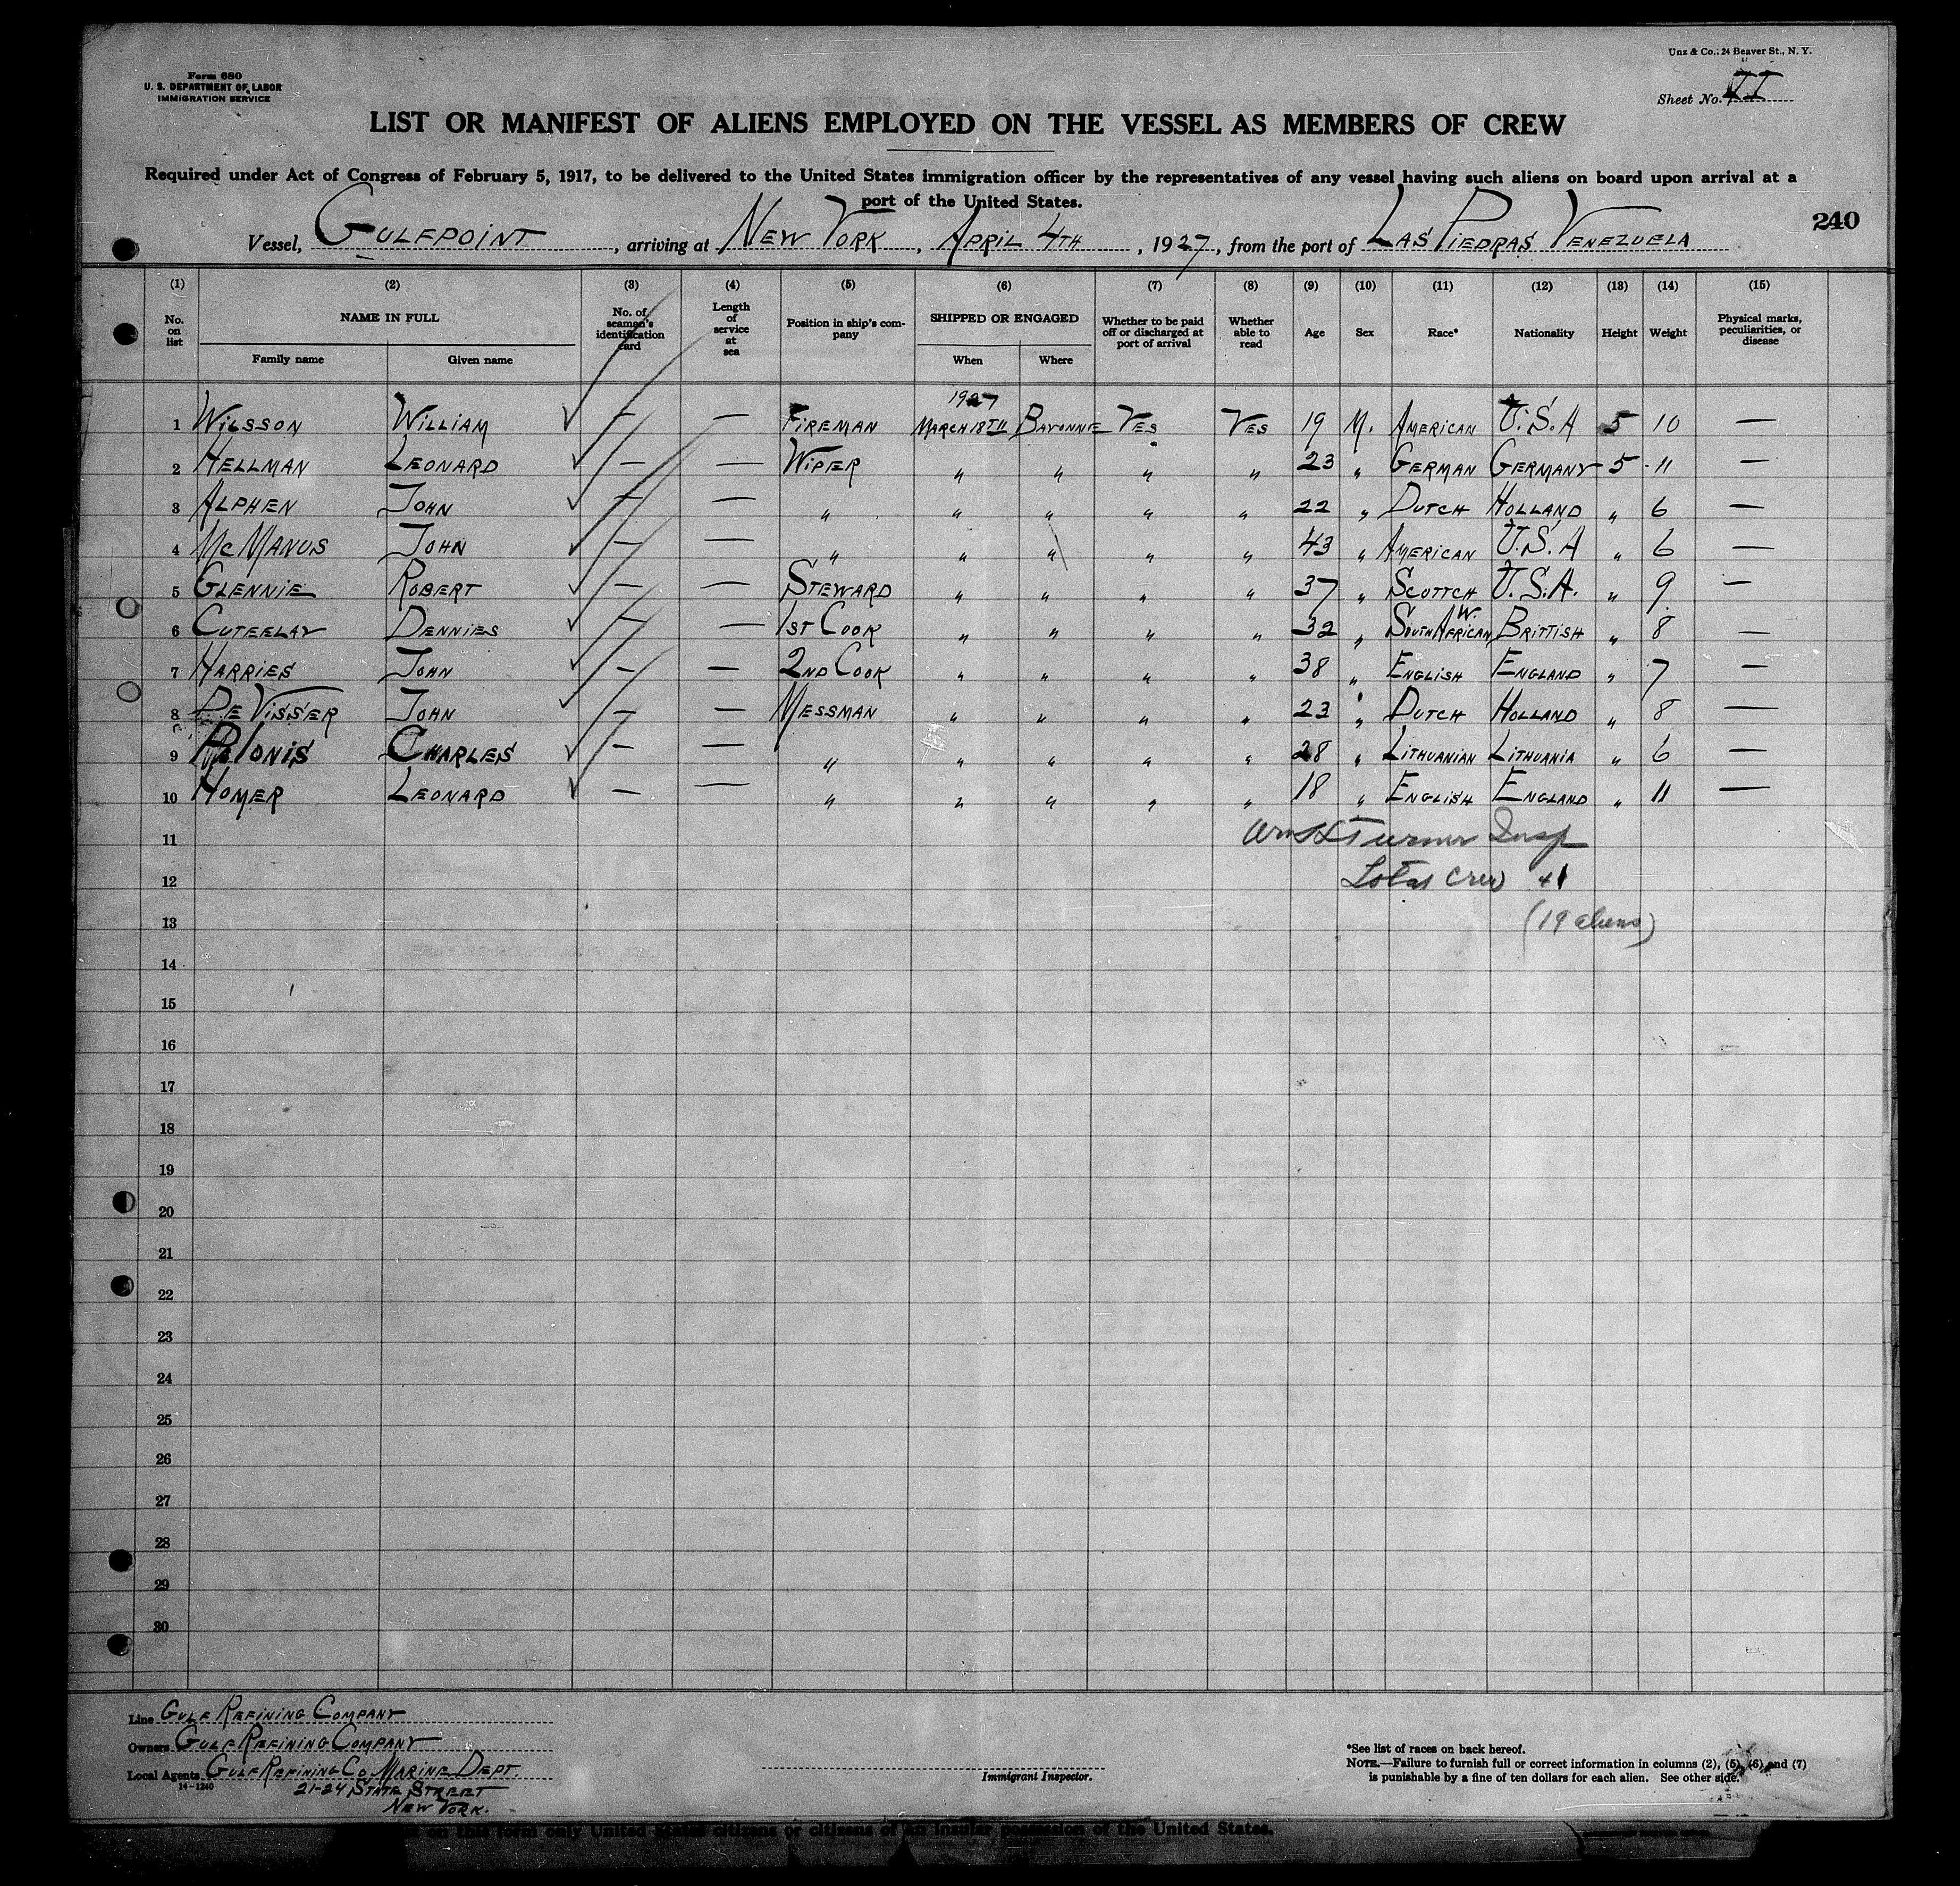 Unz & Co., 24 Beaver St., N. Y.
Form 680
U. S. DEPARTMENT OF LABOR
IMMIGRATION SERVICE
Sheet No. II
LIST OR MANIFEST OF ALIENS EMPLOYED ON THE VESSEL AS MEMBERS OF CREW
Required under Act of Congress of February 5, 1917, to be delivered to the United States immigration officer by the representatives of any vessel having such aliens on board upon arrival at a
port of the United States.
240
Vessel, GULFPOINT, arriving at NEW YORK, APRIL 4TH, 1927, from the port of LAS PIEDRAS VENEZUELA
(1) (2) (3) (4) (5) (6) (7) (8) (9) (10) (11) (12) (13) (14) (15)
No. on list NAME IN FULL No. of seaman's identification card Length of service at sea Position in ship's company SHIPPED OR ENGAGED Whether to be paid off or discharged at port of arrival Whether able to read Age Sex Race* Nationality Height Weight Physical marks, peculiarities, or disease
Family name Given name When Where
1927
1 WILSSON WILLIAM — — FIREMAN MARCH 18TH BAYONNE YES YES 19 M. AMERICAN U.S.A 5 10 —
2 HELLMAN LEONARD — — WIPER " " " " 23 " GERMAN GERMANY 5 11 —
3 ALPHEN JOHN — — " " " " " 22 " DUTCH HOLLAND " 6 —
4 MCMANUS JOHN — — " " " " " 43 " AMERICAN U.S.A " 6 —
5 GLENNIE ROBERT — — STEWARD " " " " 37 " SCOTTCH U.S.A. " 9 —
6 CUTEELAY DENNIES — — 1ST COOK " " " " 32 " SOUTH W. AFRICAN BRITTISH " 8 —
7 HARRIES JOHN — — 2ND COOK " " " " 38 " ENGLISH ENGLAND " 7 —
8 DE VISSER JOHN — — MESSMAN " " " " 23 " DUTCH HOLLAND " 8 —
9 CHARLES — — " " " " " 28 " LITHUANIAN LITHUANIA " 6 —
10 HOMER LEONARD — — " " " " " 18 " ENGLISH ENGLAND " 11 —
11 Turner Insp
12 Total Crew 41
13 (19 aliens)
14
15
16
17
18
19
20
21
22
23
24
25
26
27
28
29
30
Line GULF REFINING COMPANY
Owners GULF REFINING COMPANY
Local Agents GULF REFINING CO MARINE DEPT.
14-1240
21-24 STATE STREET
NEW YORK.
Immigrant Inspector.
*See list of races on back hereof.
NOTE.—Failure to furnish full or correct information in columns (2), (5), (6) and (7)
is punishable by a fine of ten dollars for each alien. See other side.
on this form only United States citizens or citizens of an insular possession of the United States.